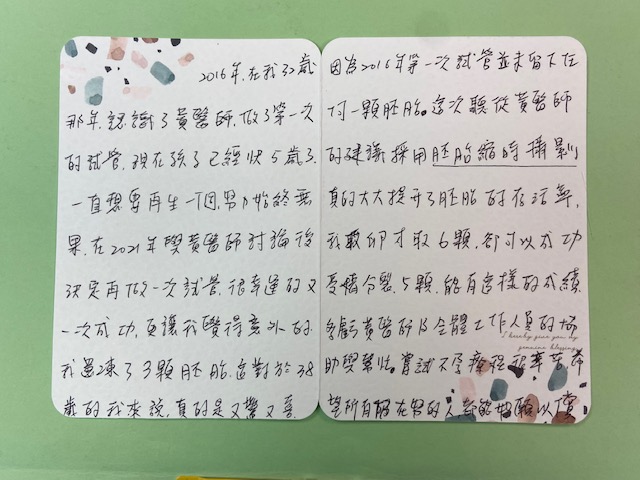 2016年,在我32歲
那年,認識了黃醫師,做了第一次
的試管,現在孩子已經快5歲了,
一直想要再生一個,努力始終無
果,在2021年與黃醫師討論後
決定再做一次試管,很幸運的又
一次成功,更讓我覺得意外的,
我還凍了3顆胚胎,這對於38
歲的我來說,真的是又驚又喜,
因為2016年第一次試管並未留下任
何一顆胚胎。這次聽從黃醫師
的建議採用胚胎縮時攝影
真的大大提升了胚胎的存活率,
我取卵才取6顆,卻可以成功
受精分裂5顆,能有這樣的成績
多虧黃醫師及全體工作人員的協
助與幫忙。嘗試不孕療程很辛苦,希
望所有努力的人都能如願以償
I hereby give you my
genuine blessings